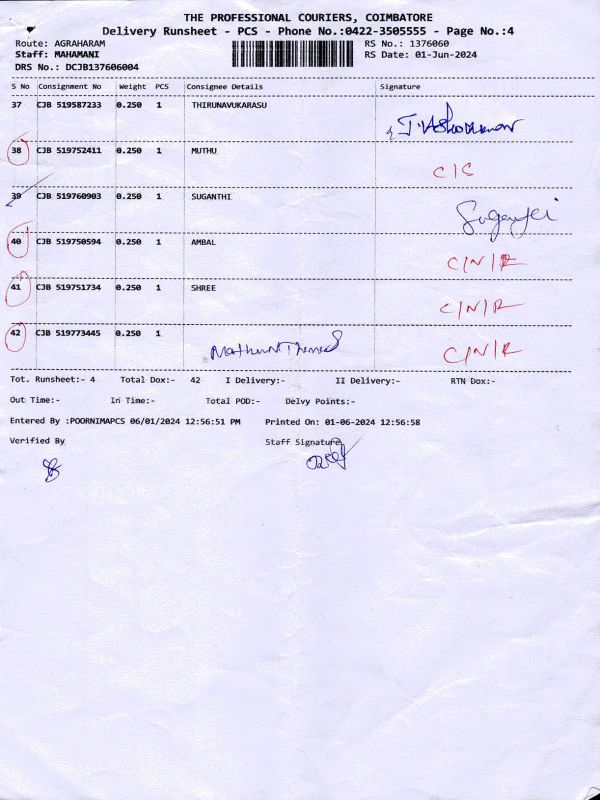 THE PROFESSIONAL COURIERS, COIMBATORE
Delivery Runsheet - PCS - Phone No.:0422-3505555 - Page No.:4
Route: AGRAHARAM RS No.: 1376060
Staff: MAHAMANI RS Date: 01-Jun-2024
DRS No.: DCJB137606004
S No Consignment No Weight PCS Consignee Details Signature
37 CJB 519587233 0.250 1 THIRUNAVUKARASU
38 CJB 519752411 0.250 1 MUTHU
C/C
39 CJB 519760903 0.250 1 SUGANTHI
40 CJB 519750594 0.250 1 AMBAL
C/N/R
41 CJB 519751734 0.250 1 SHREE
C/N/R
42 CJB 519773445 0.250 1
C/N/R
Tot. Runsheet:- 4 Total Dox:- 42 I Delivery:- II Delivery:- RTN Dox:-
Out Time:- In Time:- Total POD:- Delvy Points:-
Entered By :POORNIMAPCS 06/01/2024 12:56:51 PM Printed On: 01-06-2024 12:56:58
Verified By Staff Signature